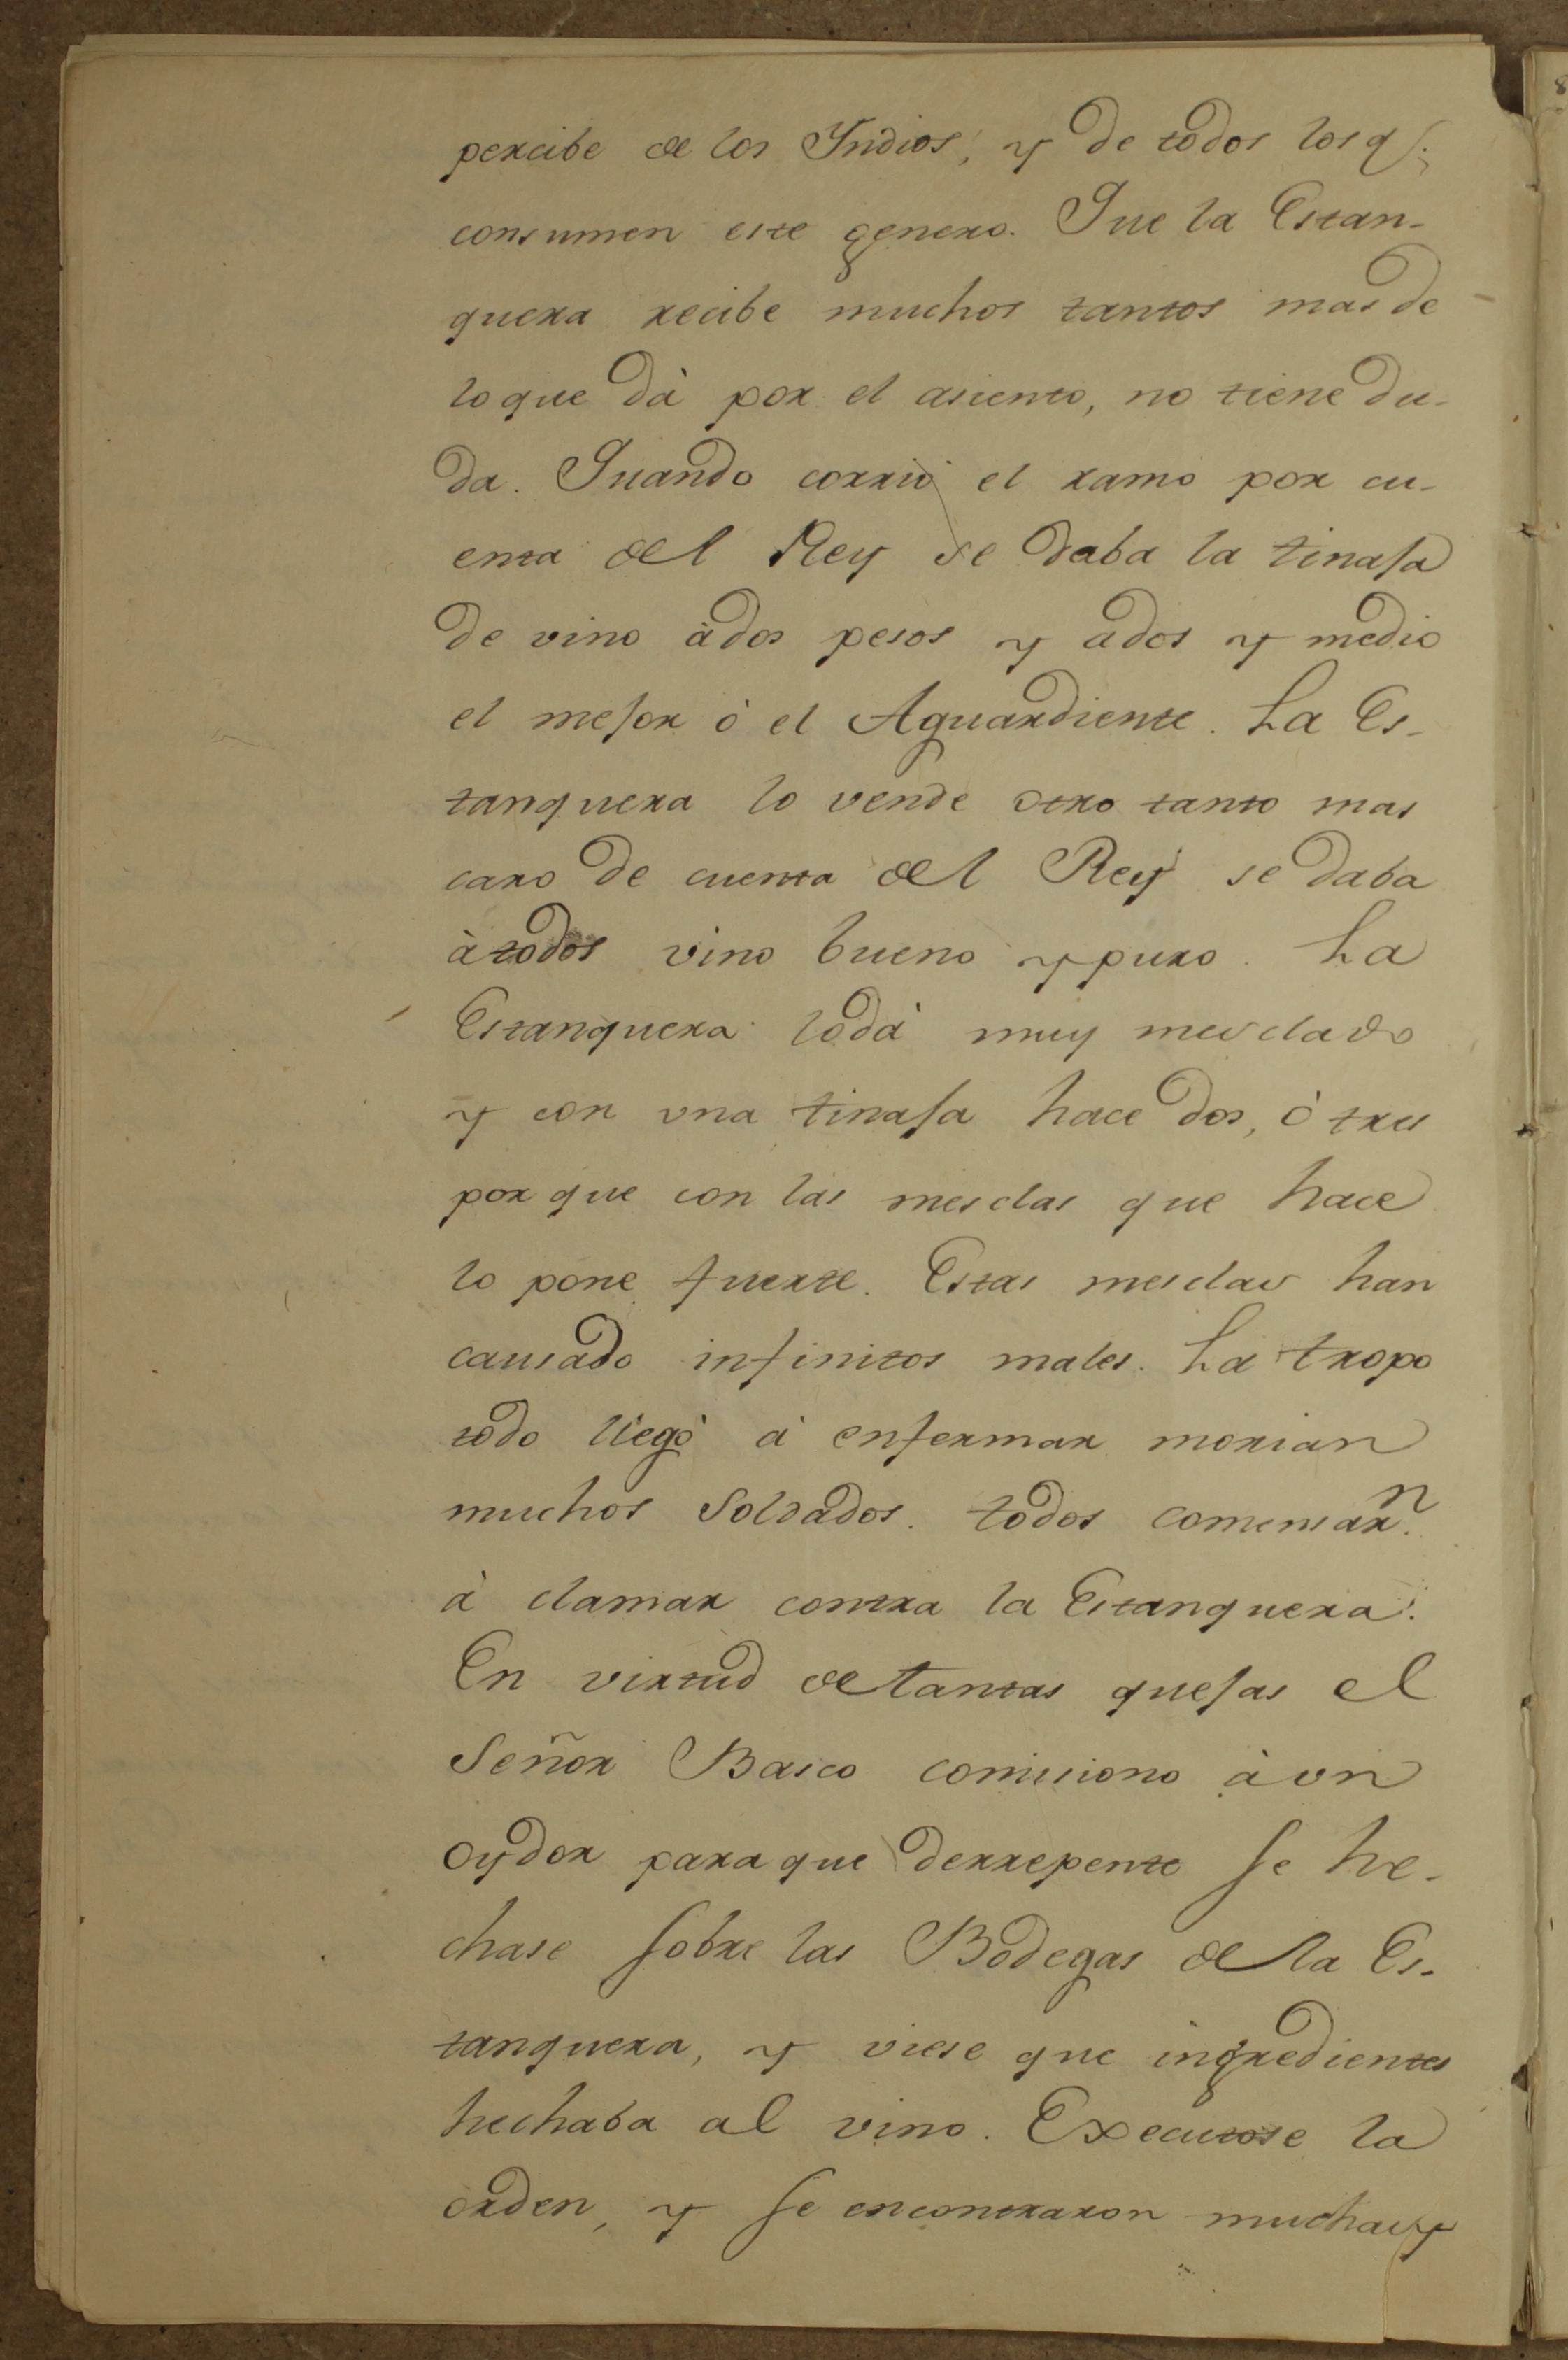 percibe de los Yndios, y de todos los q.
consumen este genero. Que la Estan-
quera recibe muchos tantos mas de
lo que dà por el asiento, no tiene du-
da. Quando corriò el ramo por cu-
enta del Rey se daba la tinaja
de vino à dos pesos y a dos y medio
el mejor ò el Aguardiente. La Es-
tanquera lo vende otro tanto mas
caro de cuenta del Rey se daba
à todos vino bueno y puro. La
Estanquera lo dà muy mesclado
y con una tinaja hace dos, ò tres
por que con las mesclas que hace
lo pone fuerte. Estas mesclas han
causado infinitos males. La tropo
todo llegò à enfermar morian
muchos Soldados. todos comensarn.
à clamar contra la Estanquera.
En virtud de tantas quejas el
Señor Basco comisiono à un
oydor para que derrepente se he-
chase sobre las Bodegas de la Es-
tanquera, y viese que ingredientes
hechaba al vino. Executose la
orden, y se encontraron muchas y